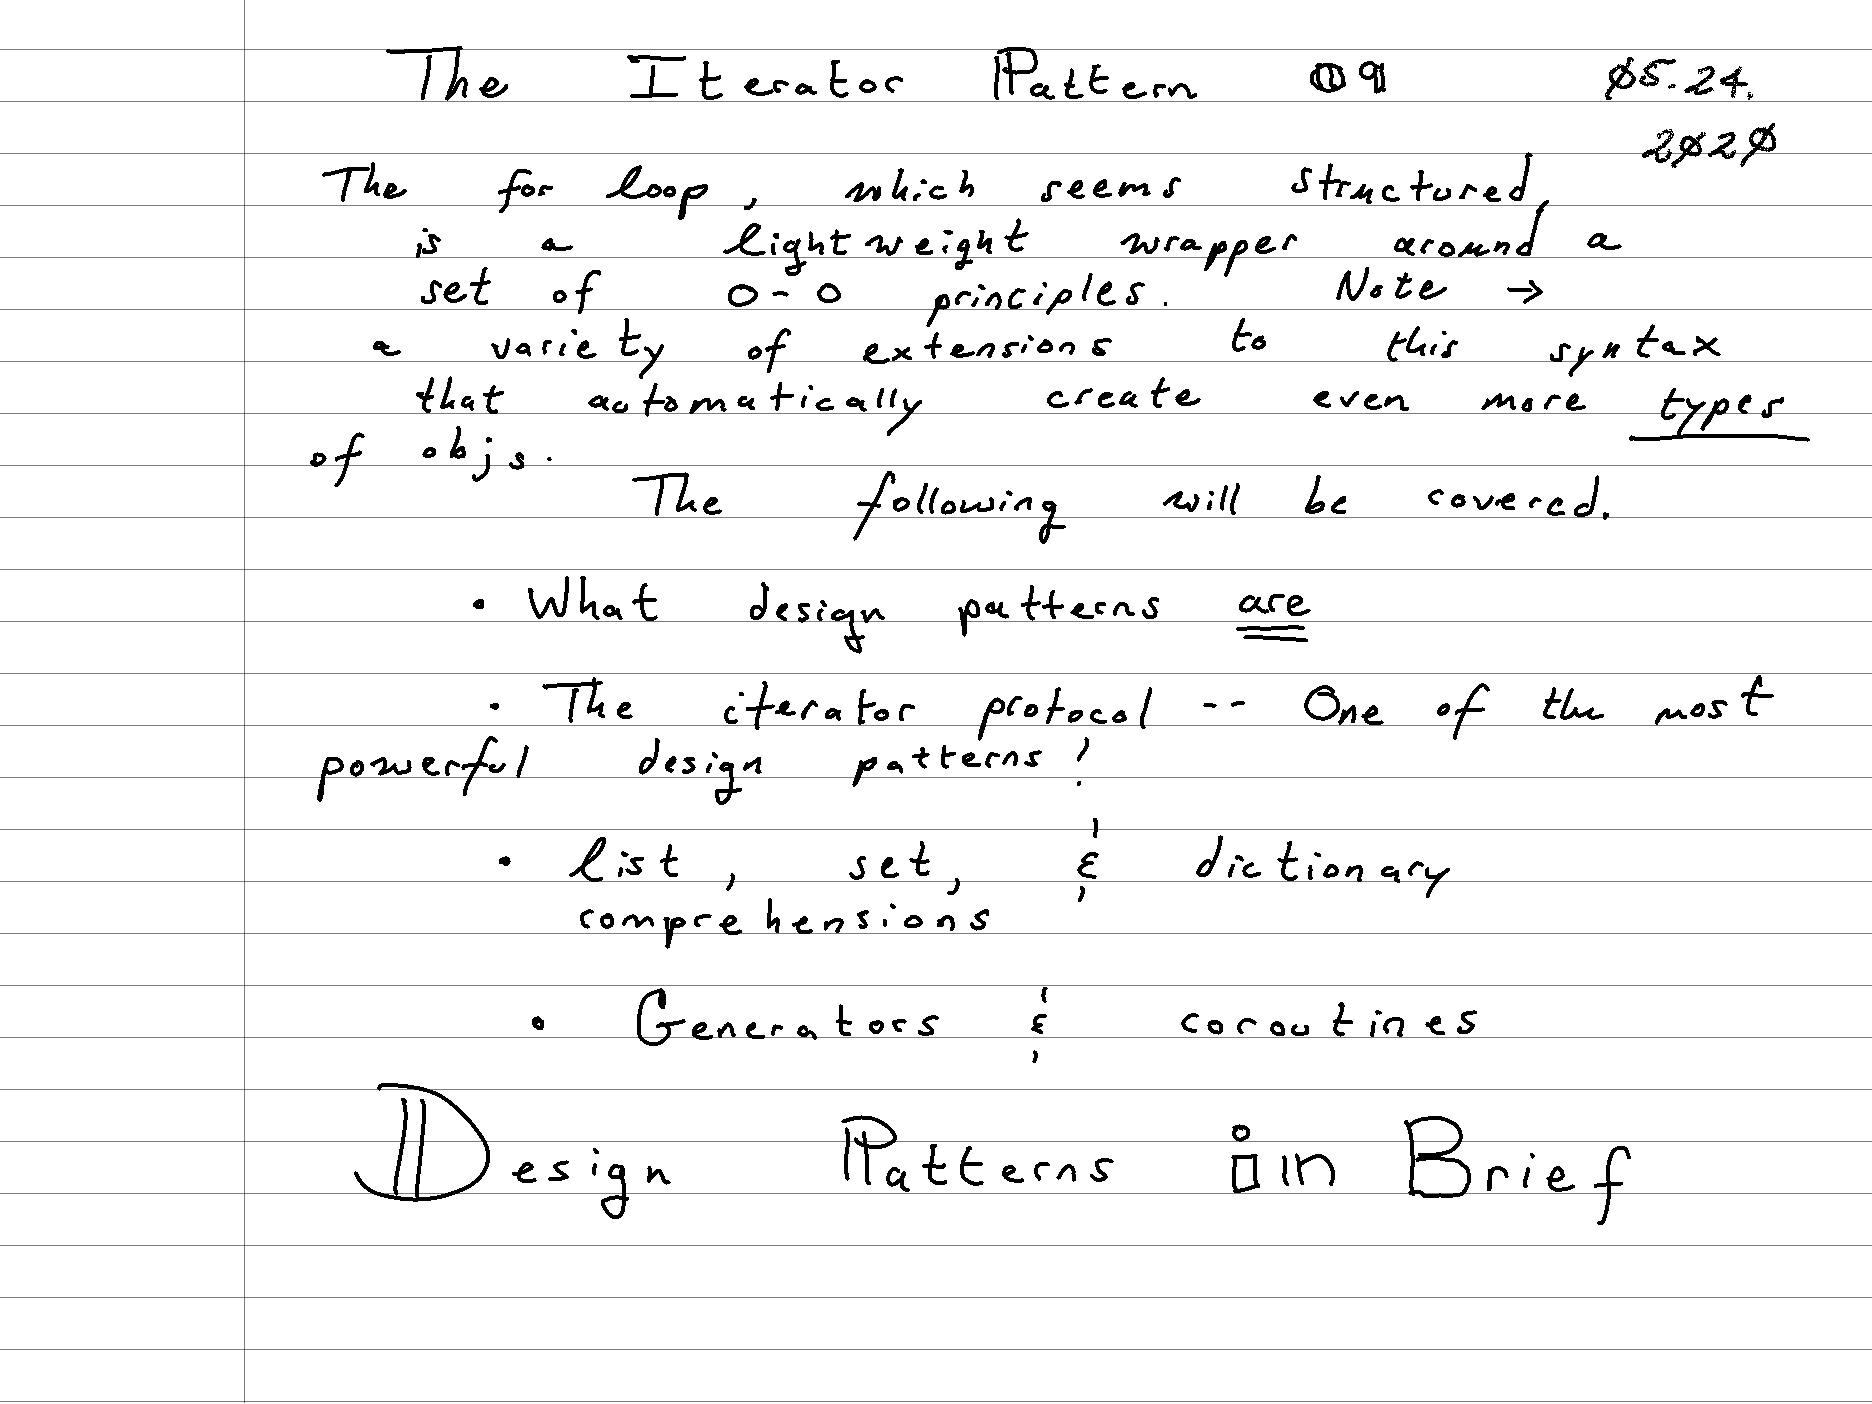 The Iterator Pattern 09 05.24.
2020
The for loop, which seems structured,
is a lightweight wrapper around a
set of O-O principles. Note →
a variety of extensions to this syntax
that automatically create even more types
of objs.
The following will be covered.
• What design patterns are
• The iterator protocol -- One of the most
powerful design patterns!
• list, set, & dictionary
comprehensions
• Generators & coroutines
Design Patterns in Brief